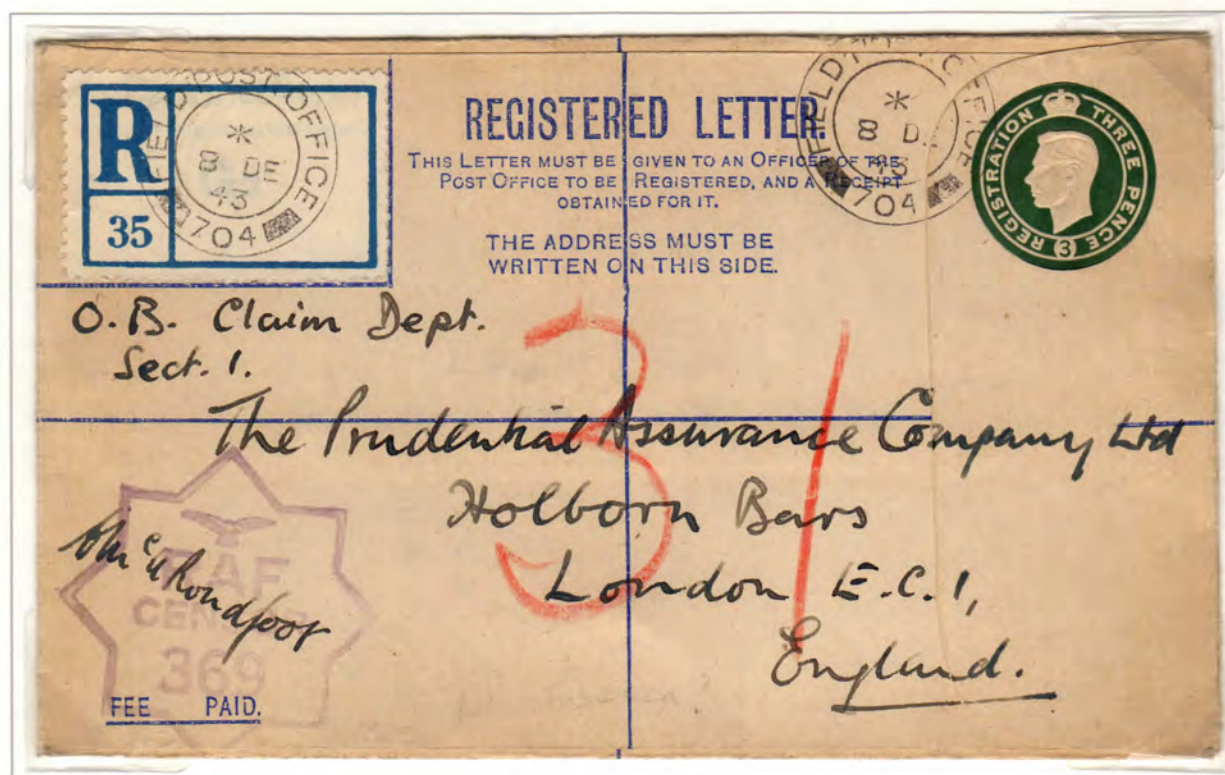 FIELD POST OFFICE
*
8 DE
43
704
R
35
REGISTERED LETTER.
THIS LETTER MUST BE GIVEN TO AN OFFICER OF THE
POST OFFICE TO BE REGISTERED, AND A RECEIPT
OBTAINED FOR IT.
THE ADDRESS MUST BE
WRITTEN ON THIS SIDE.
FIELD POST OFFICE
*
8 DE
43
704
REGISTRATION THREE PENCE
3
O.B. Claim Dept.
Sect. 1.
The Prudential Assurance Company Ltd
Holborn Bars
London E.C.1,
England.
3/
RAF
CENSOR
369
FEE PAID.